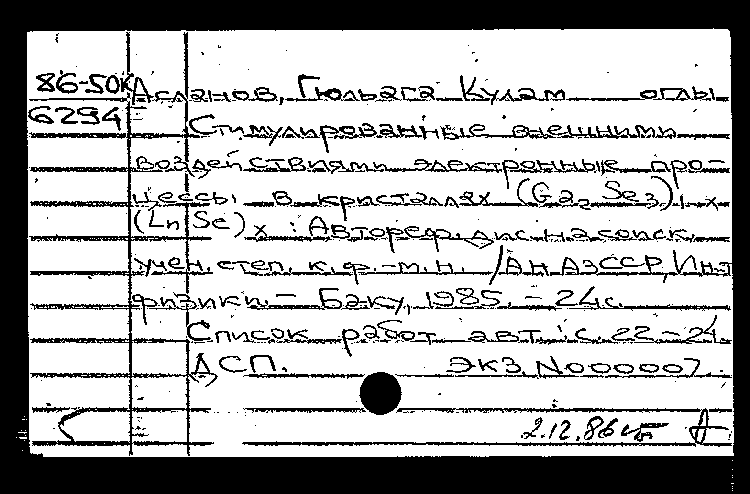 86-50к Асланов, Гюльага Кулам оглы
6294
Стимулированные внешними
воздействиями электронные про-
цессы в кристаллах (Ga2 Se3)1-x
(Ln Se)x : Автореф. дис. на соиск.
учен. степ. к. ф.-м. н. / АН АзССР, Ин-т
физики. - Баку, 1985. - 24 с.
Список работ авт.: с. 22-24.
ДСП. экз. N000007.
2.12.86